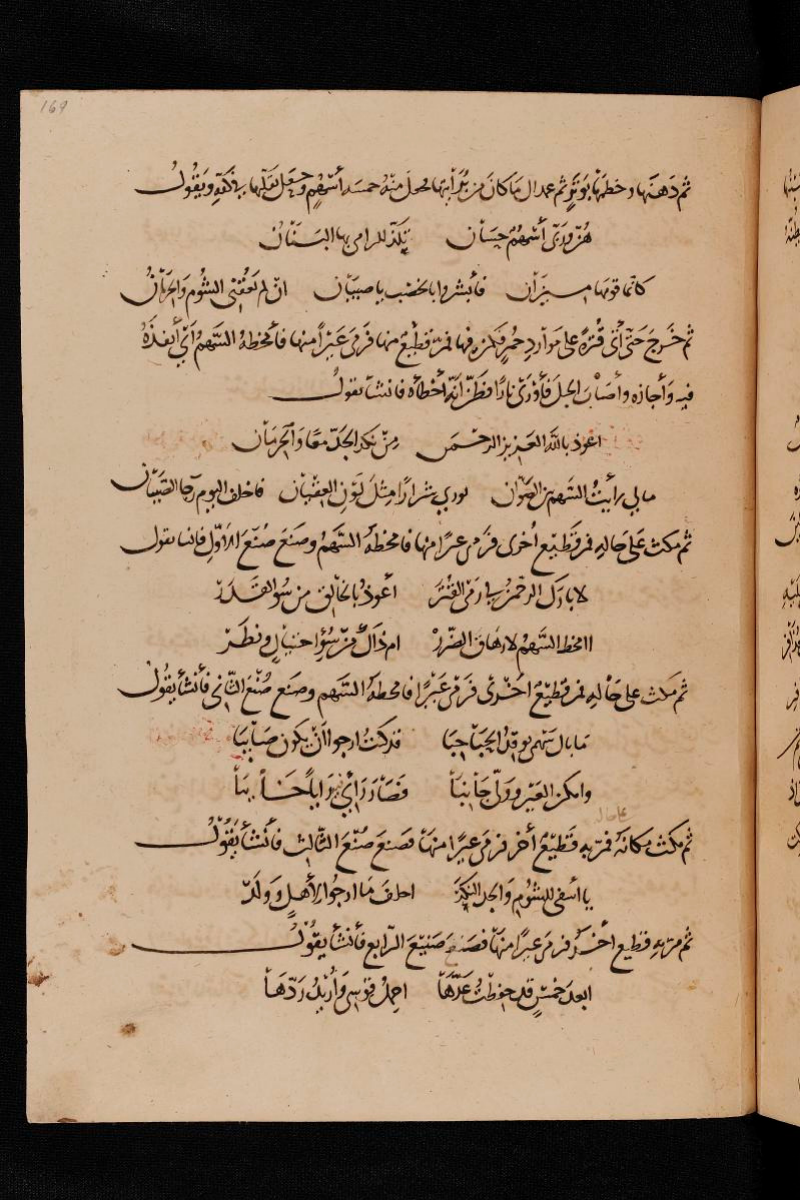 169
ثم دهنها وخطمها بوتر ثم عمد الى ما كان من برايتها فجعل منه خمسة أسهم وجعل يقلبها في كفه ويقول
هن وربى أسهم حسان تلذ للرامى بها البنان
كانما قومها ميزان فأبشروا بالخصب يا صبيان ان لم يعقنى الشوم والحرمان
ثم خرج حتى أتى قترة على موارد حمر فكمن فيها فمر قطيع منها فرمى عيرا منها فأمخطه السهم أي أنفذه
فيه وأجازه وأصاب الجبل فأورى نارا فظن أنه أخطأه فانشأ يقول
اعوذ بالله العزيز الرحمن من نكد الجد معا والحرمان
مالى رأيت السهم بين الصوان يورى شرارا مثل لون العقبان فاخلف اليوم رجا الصبيان
ثم مكث على حاله فمر قطيع اخرى فرمى عيرا منها فامخطه السهم وصنع صنع الاول فانشا يقول
لا بارك الرحمن فى رمى القتر اعوذ بالخالق من سؤ القدر
اامخط السهم لارهاق الضرر ام ذاك من سؤ احتيال ونظر
ثم مكث على حاله فمر قطيع اخرى فرمى عيرا فامخطه السهم وصنع صنع الثانى فأنشأ يقول
ما بال سهمى يوقد الحباحبا قد كنت ارجوا أن يكون صايبا
وامكن العير وولى جانبا فصار رأيى فيه رايا خائبا
ثم مكث مكانه فمر به قطيع أخر فرمى عيرا منها فصنع صنع الثالث فأنشأ يقول
يا اسفى للشوم والجد النكد اخلف ما ارجوا لأهل وولد
ثم مر به قطيع أخر فرمى عيرا منها فصنع صنيع الرابع فأنشأ يقول
ابعد خمس قد حفظت عدها احمل قوسى وأريد ردها